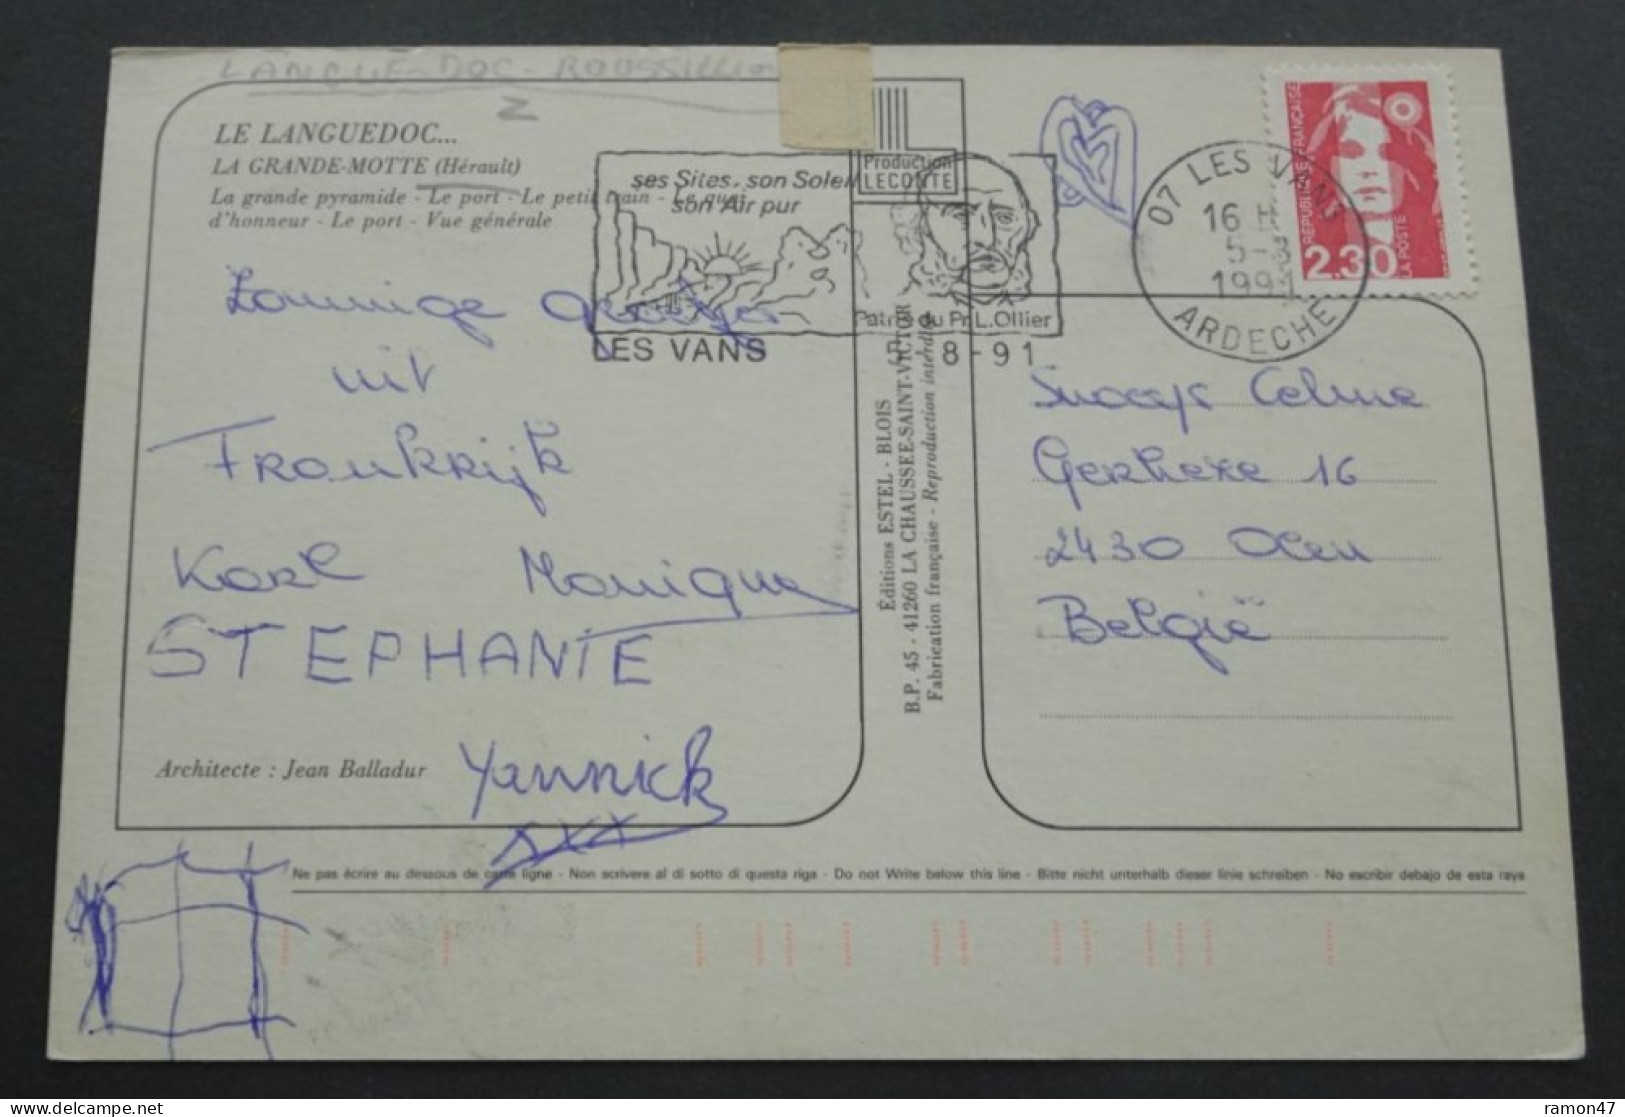 LANGUE-DOC-ROUSSILLION
LE LANGUEDOC...
LA GRANDE-MOTTE (Hérault)
La grande pyramide - Le port - Le petit train - Le quai
d'honneur - Le port - Vue générale
Zonnige groetjes
uit
Frankrijk
Karl Monique
STEPHANIE
Yannick
xxx
Architecte : Jean Balladur
Production
LECONTE
ses Sites, son Soleil
son Air pur
Patrie du Pr. L. Ollier
LES VANS
8-91
07 LES VANS
16 H
5-8
1991
ARDECHE
RÉPUBLIQUE FRANÇAISE
2,30
LA POSTE
Éditions ESTEL - BLOIS
B.P. 45 - 41260 LA CHAUSSEE-SAINT-VICTOR
Fabrication française - Reproduction interdite
Snoeys Celine
Gerheze 16
2430 Olen
België
Ne pas écrire au dessous de cette ligne - Non scrivere al di sotto di questa riga - Do not Write below this line - Bitte nicht unterhalb dieser linie schreiben - No escribir debajo de esta raya
delcampe.net
ramon47